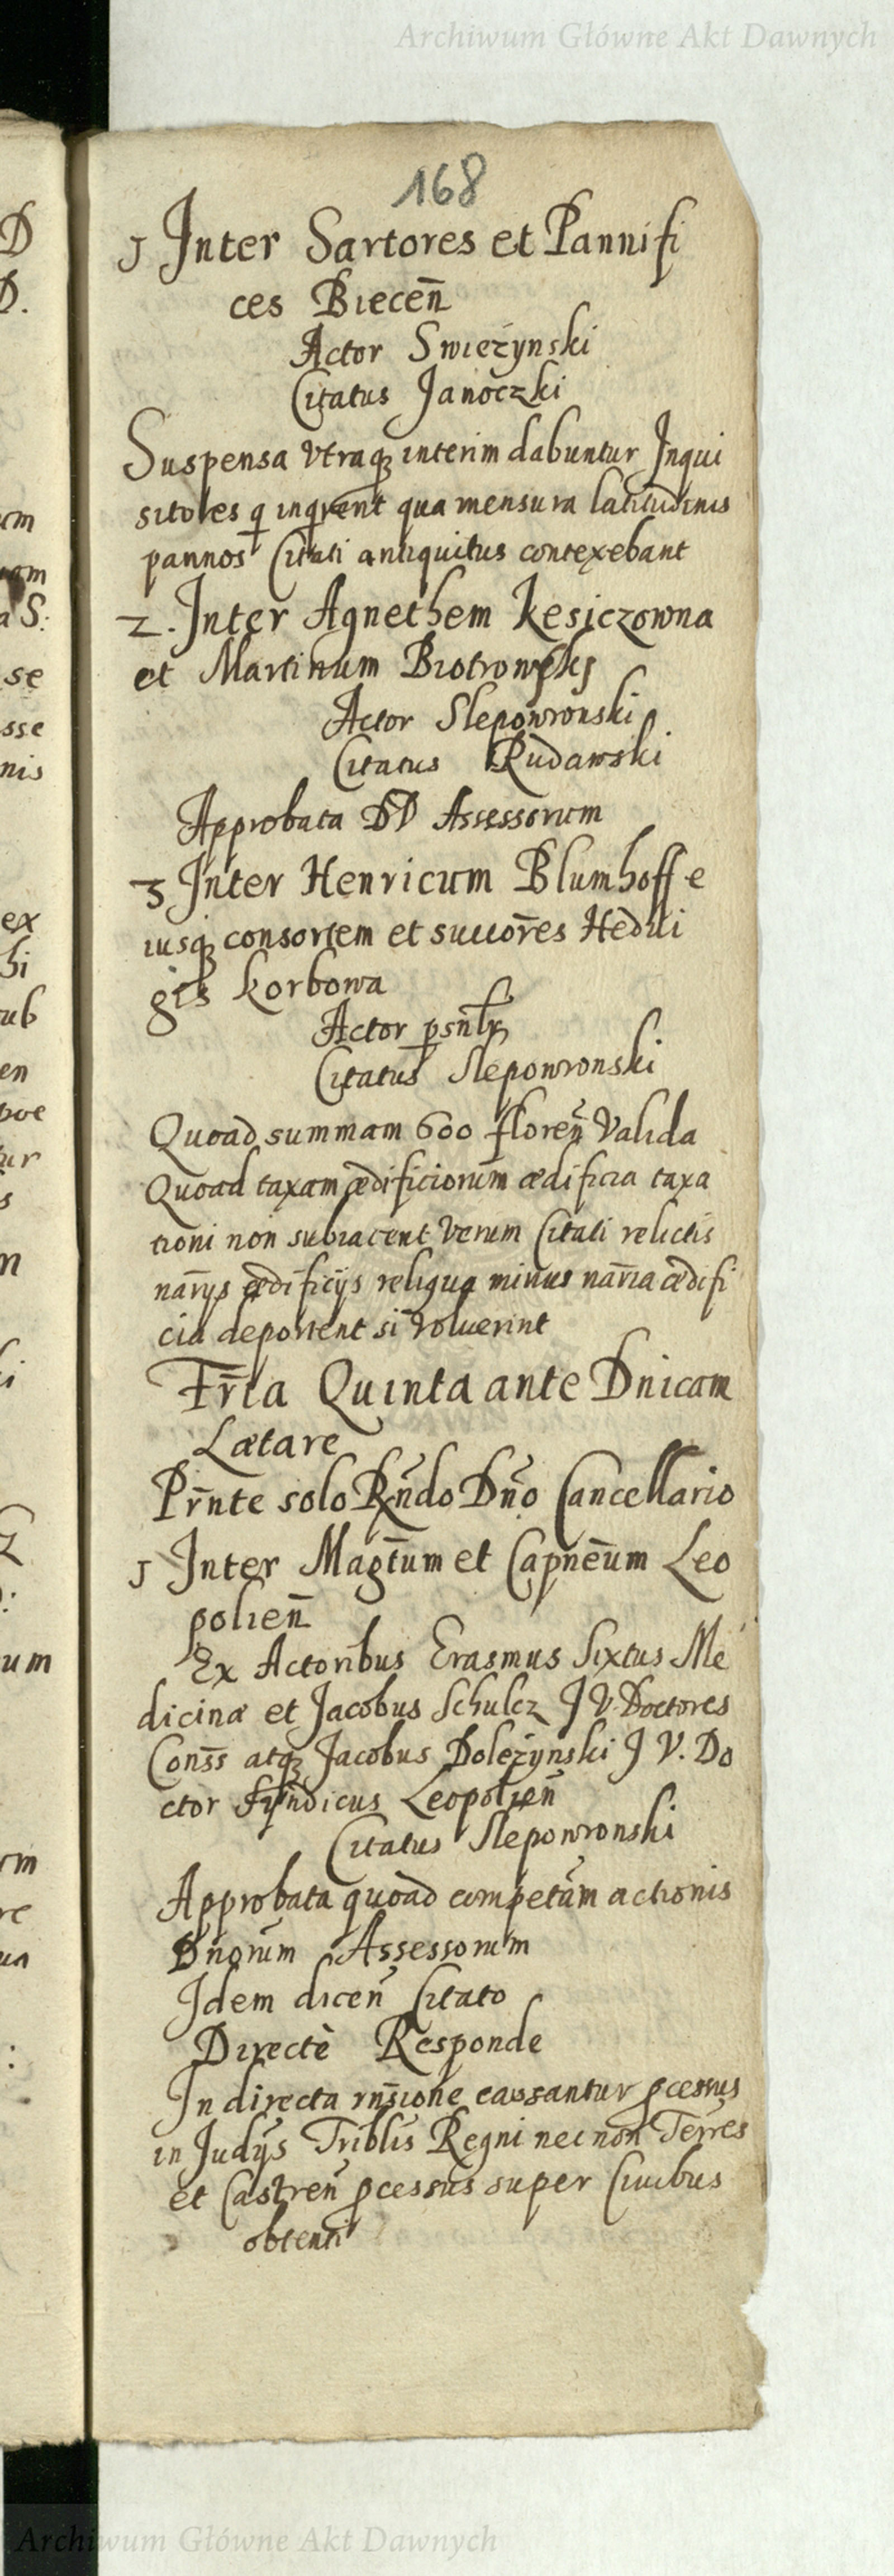 Archiwum Główne Akt Dawnych
168
J Inter Sartores et Pannifi
ces Biecen̄
Actor Swieżynski
Citatus Janoczki
Suspensa vtraq₃ interim dabuntur Inqui
sitores q inqrent qua mensura latitudinis
pannos Citati antiquitus contexebant
2. Inter Agnethem Kesiczowna
et Martinum Biotrowskj
Actor Slepowronski
Citatus Rudawski
Approbata DD Assessorum
3 Inter Henricum Blumhoff e
iusq₃ consortem et succor̄es Hedui
gis Korbowa
Actor psn̄lr
Citatus Slepowronski
Quoad summam 600 floren̄ valida
Quoad taxam ædificiorum ædificia taxa
tioni non subiacent verum Citati relictis
nar̄ijs ædificijs reliqua minus nar̄ia ædifi
cia deportent si voluerint
Fr̄ia Quinta ante Dnicam
Lætare
Pr̄nte solo Rn̄do Dn̄o Cancellario
J Inter Magt̄um et Capnēum Leo
polien̄
Ex Actoribus Erasmus Sixtus Me
dicinæ et Jacobus Schulcz J V. Doctores
Conss̄ atq₃ Jacobus Doleżynski J V. Do
ctor Syndicus Leopolien̄
Citatus Slepowronski
Approbata quoad competām actionis
Dn̄orum Assessorum
Idem dicen̄ Citato
Directè Responde
In directa rn̄sione cassantur pcessus
in Judijs Triblis̄ Regni nec non Terres̄
et Castren̄ pcessus super Ciuibus
obtenti
Archiwum Główne Akt Dawnych